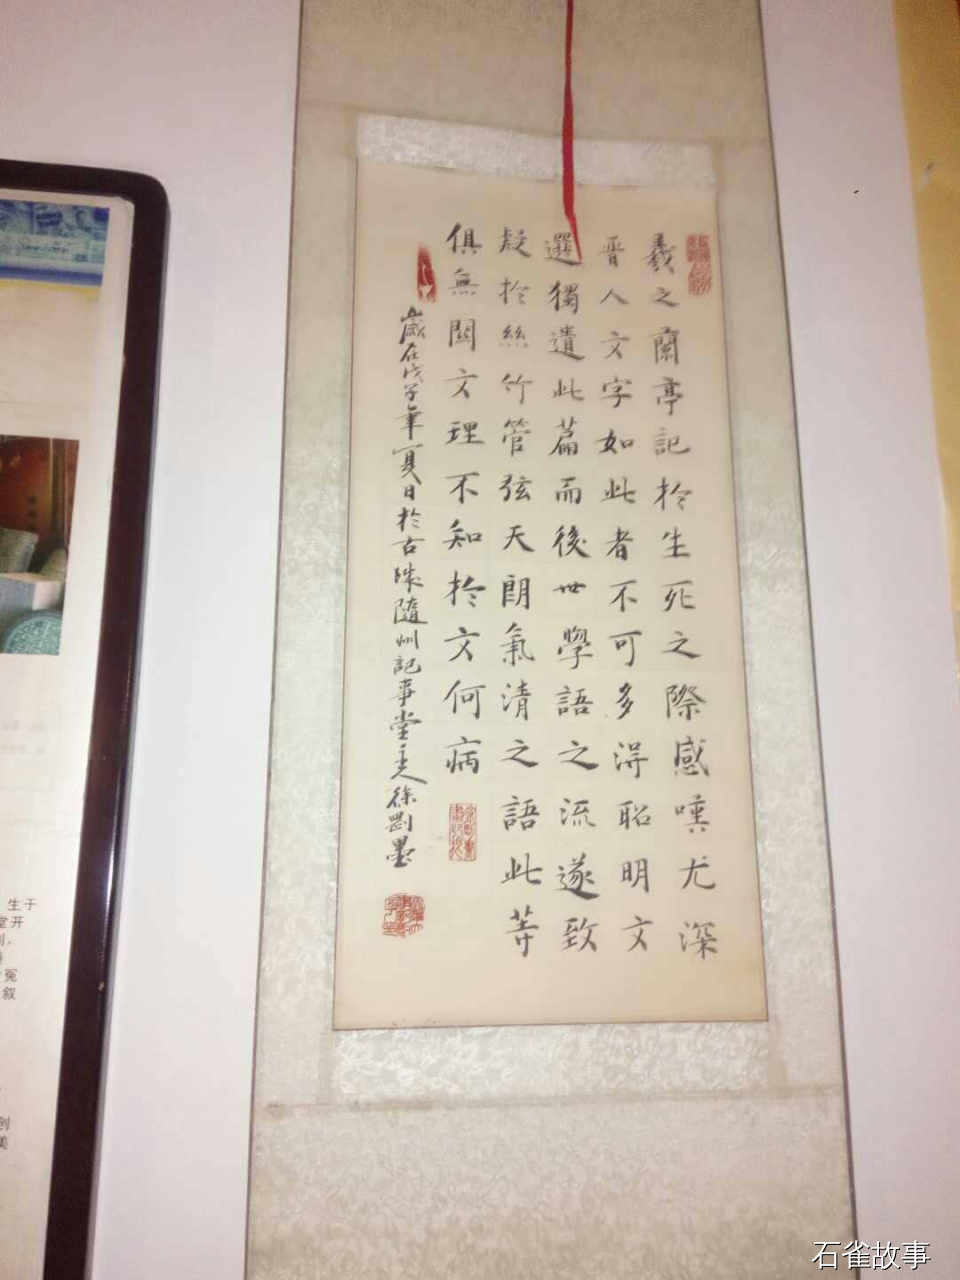 羲之蘭亭記於生死之際感嘆尤深
晉人文字如此者不可多得昭明文
選獨遺此篇而後世學語之流遂致
疑於絲竹管弦天朗氣清之語此等
俱無関文理不知於文何病
歲在戊子年夏日於古隨州記事堂主人徐
生于
堂开
冤
叙
创
美
石雀故事